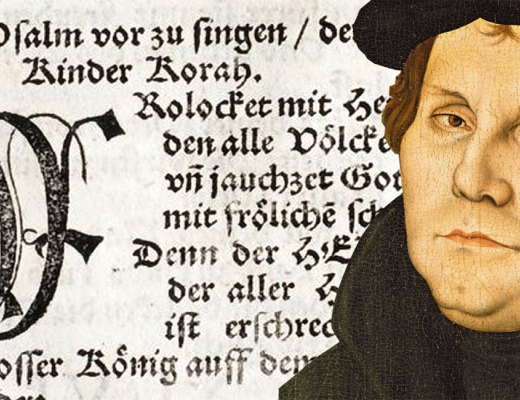 Pſalm vor zu ſingen / de
Kinder Korah.
Rolocket mit He
den alle Völcke
vñ jauchzet Got
mit frölichē ſch
Denn der HE
der aller H
iſt erſchrec
oſſer König auff dem